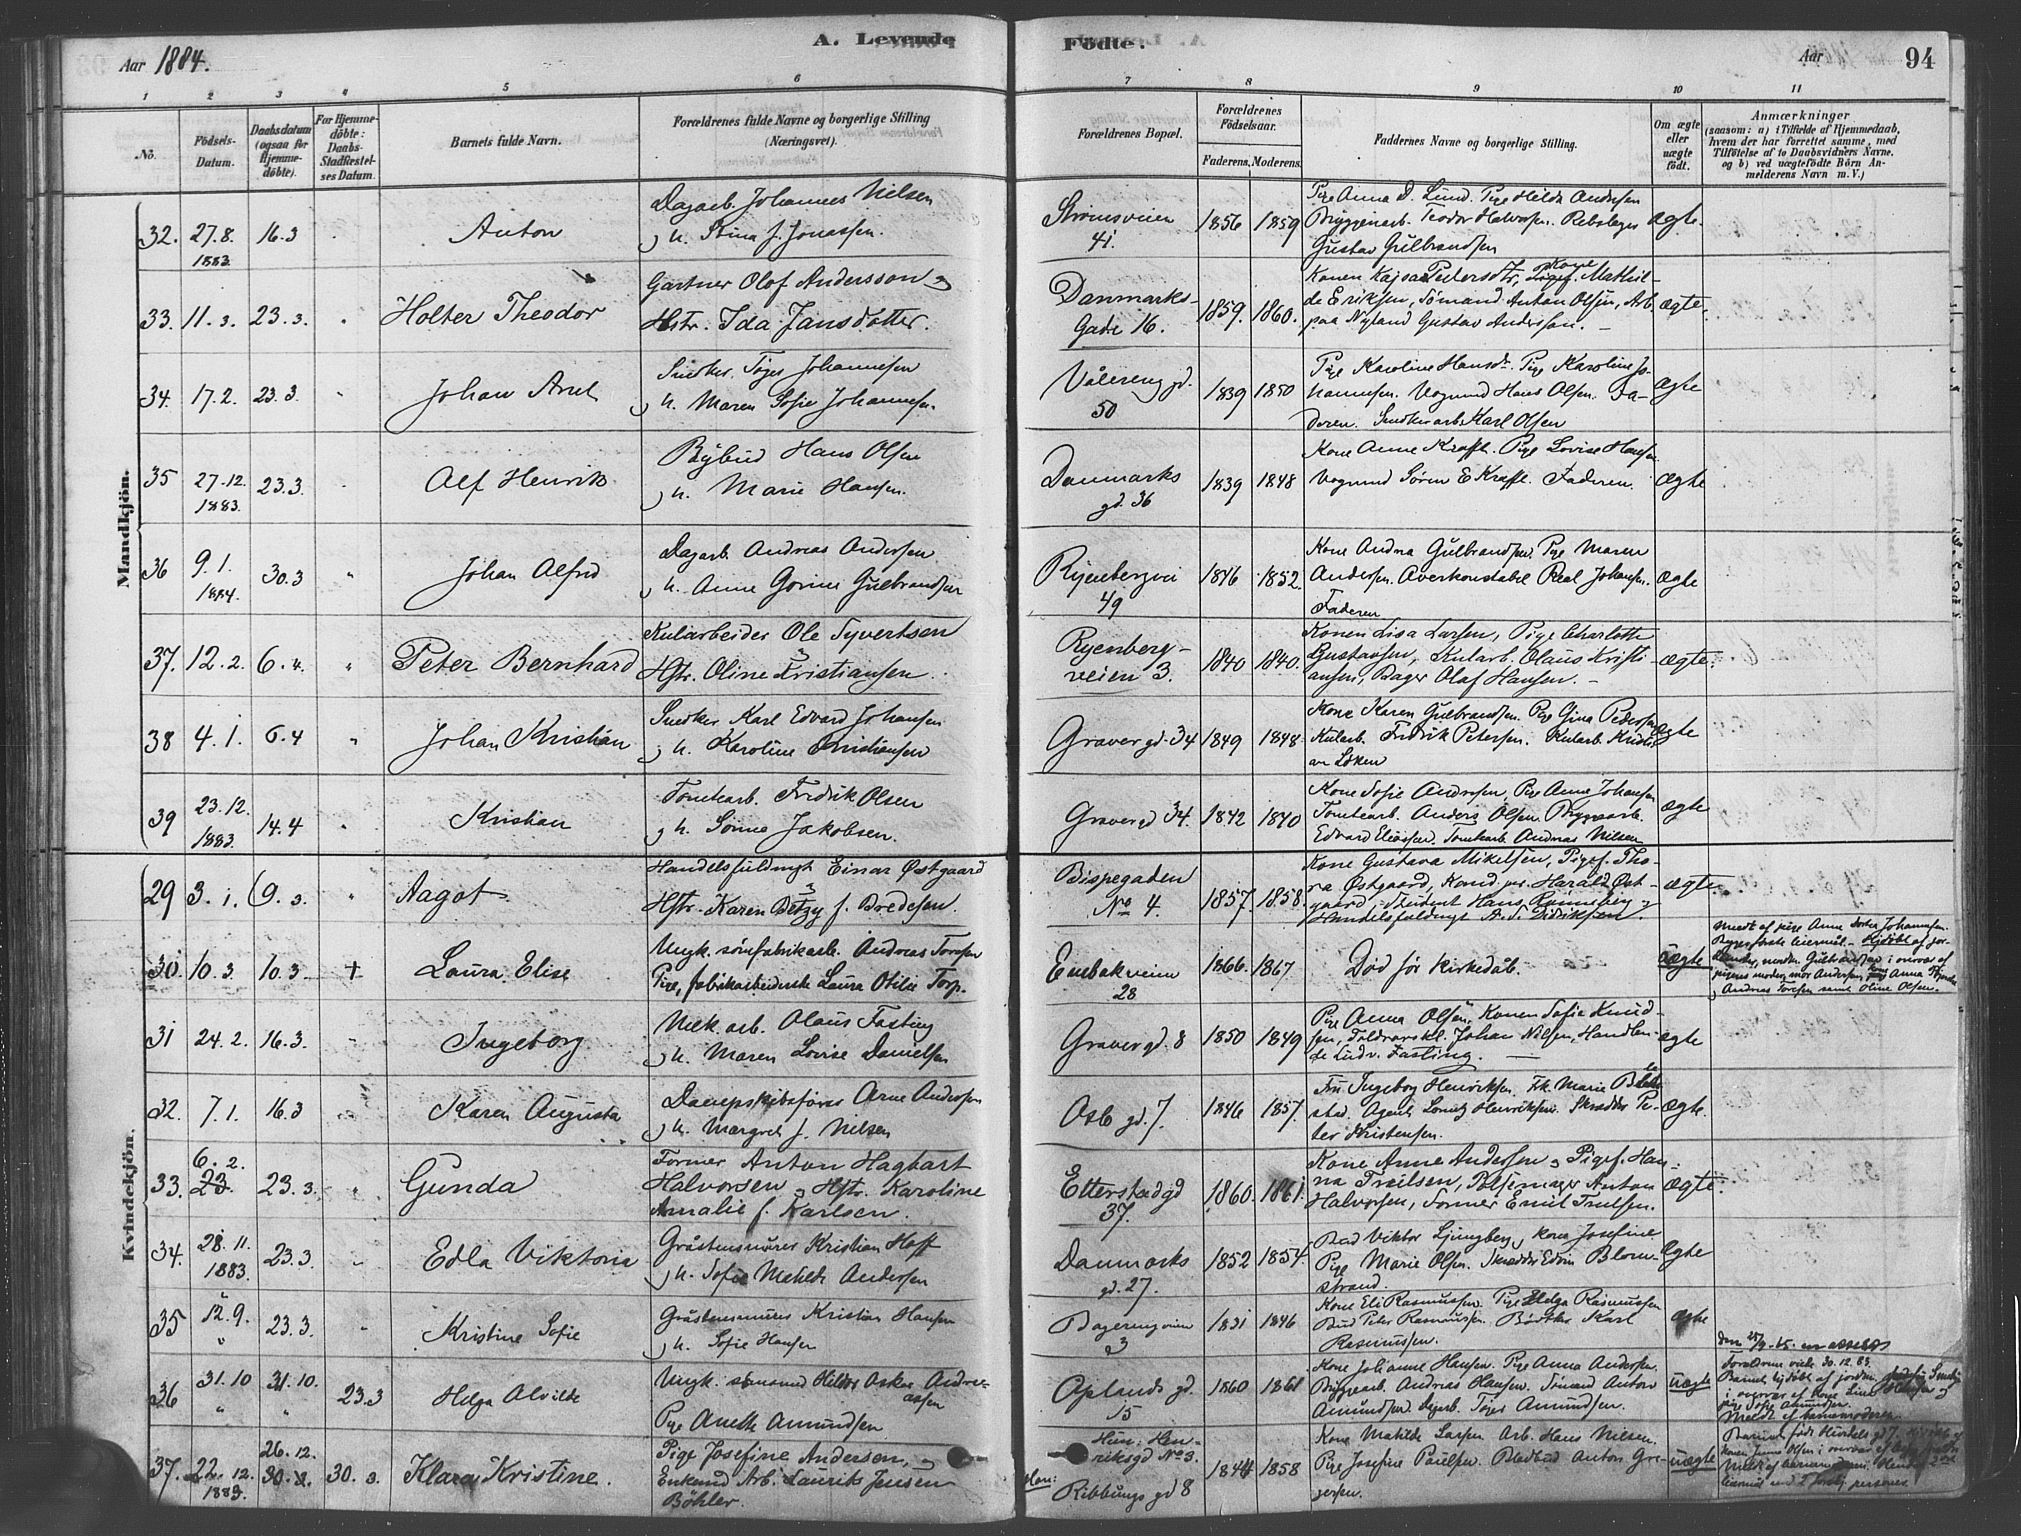 A. Levende Födte.
Aar 1884.
Aar
94
1 2 3 4 5 6 7 8 9 10 11
No.
Födsels-
Datum.
Daabsdatum
(ogsaa for
Hjemme-
döbte).
For Hjemme-
döbte:
Daabs-
Stadfæstel-
ses Datum.
Barnets fulde Navn.
Forældrenes fulde Navne og borgerlige Stilling
(Næringsvei).
Forældrenes Bopæl.
Forældrenes
Födselsaar.
Faderens. Moderens.
Faddernes Navne og borgerlige Stilling.
Om ægte
eller
uægte
födt.
Anmærkninger
(saasom: a) i Tilfælde af Hjemmedaab,
hvem der har forrettet samme, med
Tilföielse af to Daabsvidners Navne,
og b) ved uægtefödte Börn An-
melderens Navn m. V.)
Mandkjön.
32. 27.8. 1883. 16.3 Anton
Dagarb. Johannes Nilsen
H. Stina f. Jonassen.
Strømsveien
41.
1856 1859
Pige Anna D. Lund. Pige Hilda Andersen
Bryggearb. Teodor Halvorsen. Rebslager
Gustav Gulbrandsen
ægte.
33. 11.3. 23.3. Holter Theodor
Gartner Olof Andersson
Hstr. Ida Jansdotter.
Danmarks-
Gade 16.
1859. 1860.
Konen Kajsa Pedersdtr, Kone Mathil-
de Eriksen, Sömand Anton Olsen, Arb.
paa Nyland Gustav Andersson.
ægte.
34. 17.2. 23.3. Johan Arnt
Snedker Töger Johannesen
H. Maren Sofie Johannesen.
Vålereng gd.
50
1839 1850
Pige Karoline Hansdr. Pige Karoline Jo-
hannesen. Vognmd Hans Olsen. Fa-
deren. Snedkerarb. Karl Olsen
ægte
35 27.12. 1883. 23.3. Alf Henrik
Bybud Hans Olsen
H. Marie Hansen.
Danmarks
gd. 36
1839 1848
Kone Anne Krafft. Pige Lovise Hansen
Vognmd Sören E Krafft. Faderen.
ægte
36 9.1. 1884. 30.3 Johan Alfred
Dagarb. Andreas Andersen
H. Anne Gorine Gulbrandsen
Ryenbergvei
49
1846 1852.
Kone Andrea Gulbrandsen. Pige Maren
Andersen. Overkonstabel Johansen.
Faderen
ægte
37. 12.2. 6.4. Peter Bernhard
Kularbeider Ole Syvertsen
Hstr. Oline Kristiansen.
Ryenberg-
veien 3.
1840 1840.
Konen Lisa Larsen, Pige Charlotte
Gustavsen, Kularb. Olaus Kristi-
ansen, Bager Olaf Hansen.
ægte.
38 4.1. 6.4 Johan Kristian
Snedker Karl Edvard Johansen
H. Karoline Kristiansen
Graver gd. 34
1849 1848.
Kone Karen Gulbrandsen. Pige Gina Pedersen
Kularb. Fredrik Petersen. Kularb. Kristi-
an Löken
ægte
39 23.12. 1883. 14.4 Kristian
Tomtearb. Fredrik Olsen
H. Jakobsen.
Graver gd 34.
1842 1840
Kone Sofie Andersen, Pige Anne Johansen
Tomtearb. Anders Olsen. Bryggearb.
Edvard Eliassen. Tomtearb. Andreas Nilsen
ægte
Kvindekjön.
29 3.1. 9.3. Aagot
Handelsfuldmgt Einar Østgaard
Hstr. Karen Betzy f. Bredesen.
Bispegaden
No 4.
1857. 1858.
Kone Gustava Mikelsen, Pigef. Tho-
ra Østgaard, Harald Øst-
gaard, Student Hans Rönneberg,
Handelsfuldmgt A. S. Didriksen.
ægte.
30. 10.3. 10.3 + Laura Elise
Ungk. Andreas Toresen
Pige, fabrikarbeiderske Laura Otilie Torp.
Enebakveien
28
1866. 1867
Död før kirkedåb.
uægte
Meldt af pige Anne Johannesen.
31 24.2. 16.3. Ingeborg
Mek. arb. Olaus Fasting
H. Maren Lovise Danielsen
Graver gd. 8
1850 1849
Pige Anna Olsen, Konen Sofie Knud-
sen, Toldvavskl. Johan Nilsen, Handlen-
de Ludv. Fasting.
ægte
32. 7.1. 16.3 Karen Augusta
Dampskibsförer Arne Andersen
H. Margret f. Nilsen
Oslo gd. 7.
1846 1857.
Fru Ingeborg Henriksen. Frk. Marie
Agent Henriksen. Skrædder Pe-
ter Kristensen.
ægte.
33. 6.2. 23. 23.3. Gunda
Former Anton Hagbart
Halvorsen, Hstr. Karoline
Amalie f. Karlsen.
Etterstad gd
37.
1860. 1861.
Kone Anne Andersen, Pigef. Han-
na Truelsen, Anton
Halvorsen, Former Emil Truelsen.
ægte.
34. 28.11. 1883. 23.3. Edla Viktoria
Gråstensmurer Kristian Hoff
H. Sofie Matilde Andersen
Danmarks
gd. 27.
1852 1854.
Bud Viktor Ljungberg, kone Josefine
Pige Marie Olsen. Skrædder Edvin Blom-
strand.
ægte
35 12.9. 23.3. Kristine Sofie
Gråstensmurer Kristian Hansen
H. Sofie Hansen
3
1851 1846
Kone Eli Rasmussen. Pige Helga Rasmussen
Bud Peter Rasmussen. Bödker Karl
Rasmussen.
ægte
36 31.10 31.10. 23.3 Helga Alvilde
Ungk. sömand Hilder Oskar Andre-
assen
Pige Anette Amundsen
Oplands gd.
15
1860 1861
Kone Johanne Hansen. Pige Anna Andersen.
Bryggearb. Andreas Hansen. Sömand Anton
Amundsen. Dagarb. Töger Amundsen.
uægte
Forældrene viede 30.12.83.
Meldt af barnemoderen.
37. 22.12. 1883. 26.12. 30.3. Klara Kristine.
Pige Josefine Andersen,
Enkemd Arb. Laurits Jensen
Böhler.
Hun: Hen-
riksgd No 3.
Han:
Ribbungs gd 8
1844 1858
Kone Matilde Larsen Arb. Hans Nilsen.
Pige Josefine Paulsen. Bladbud Anton Gre-
gersen.
uægte